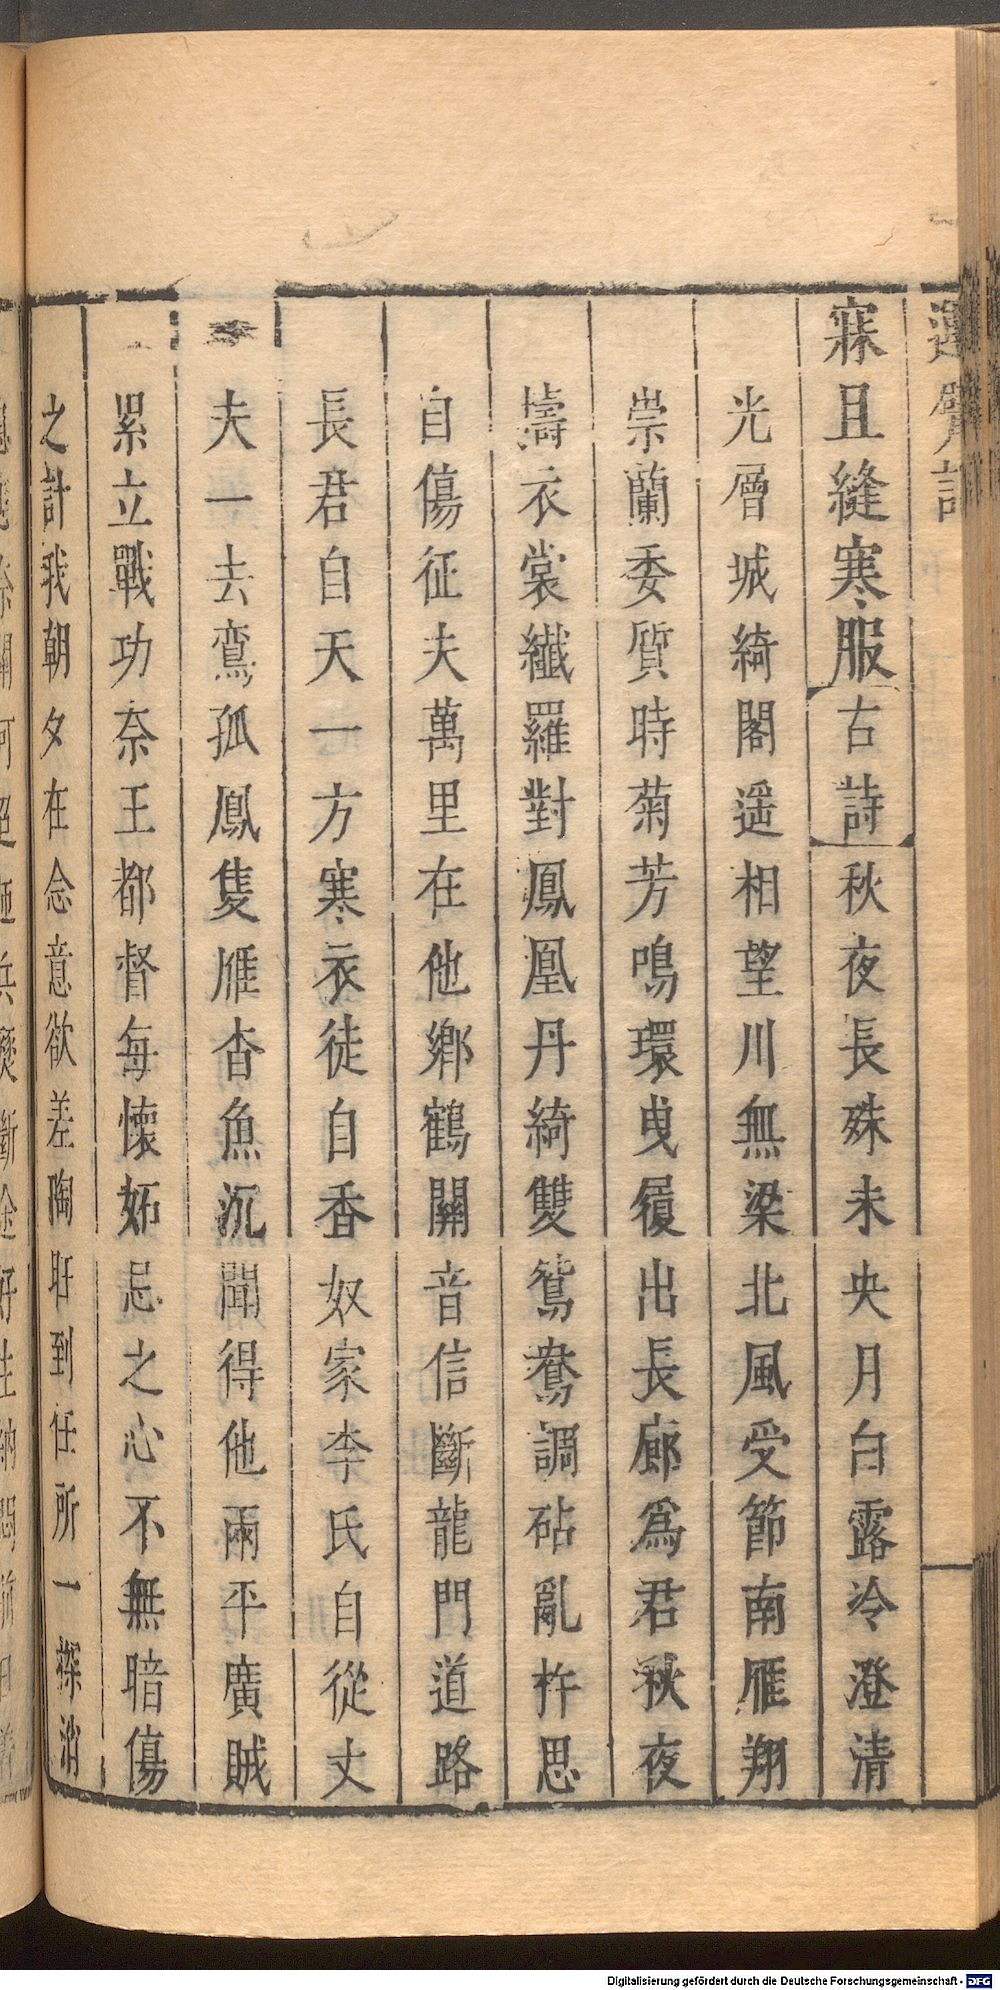 運甓記
寐且縫寒服古詩秋夜長殊未央月白露冷澄清
光層城綺閣遥相望川無梁北風受節南雁翔
崇蘭委質時菊芳鳴環曳履出長廊爲君秋夜
擣衣裳纖羅對鳳凰丹綺雙鴛鴦調砧亂杵思
自傷征夫萬里在他鄉鶴關音信斷龍門道路
長君自天一方寒衣徒自香奴家李氏自從丈
夫一去鸞孤鳳隻雁杳魚沉聞得他兩平廣賊
累立戰功奈王都督每懷妬忌之心不無暗傷
之計我朝夕在念意欲差陶旺到任所一探消
Digitalisierung gefördert durch die Deutsche Forschungsgemeinschaft - DFG